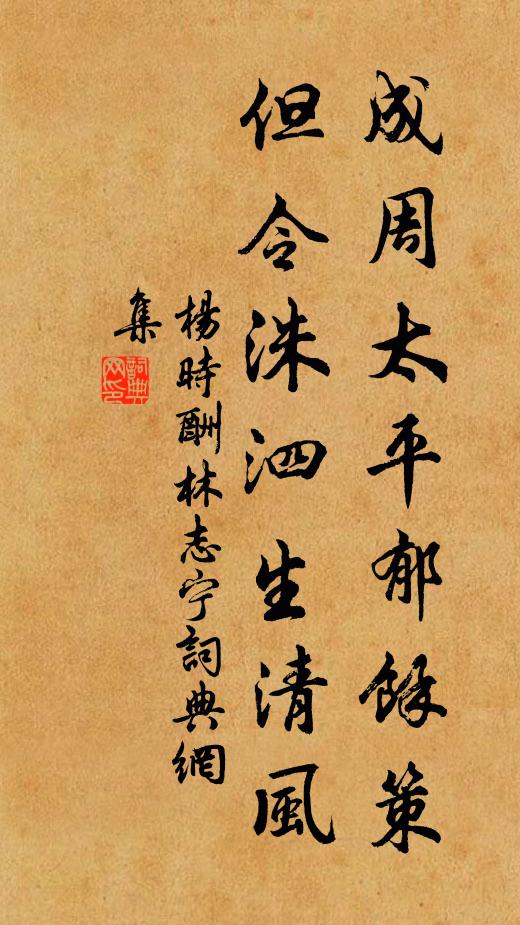 成周太平郁餘策
但令洙泗生清風
楊時酬林志宁詞典網
集
詞典网印